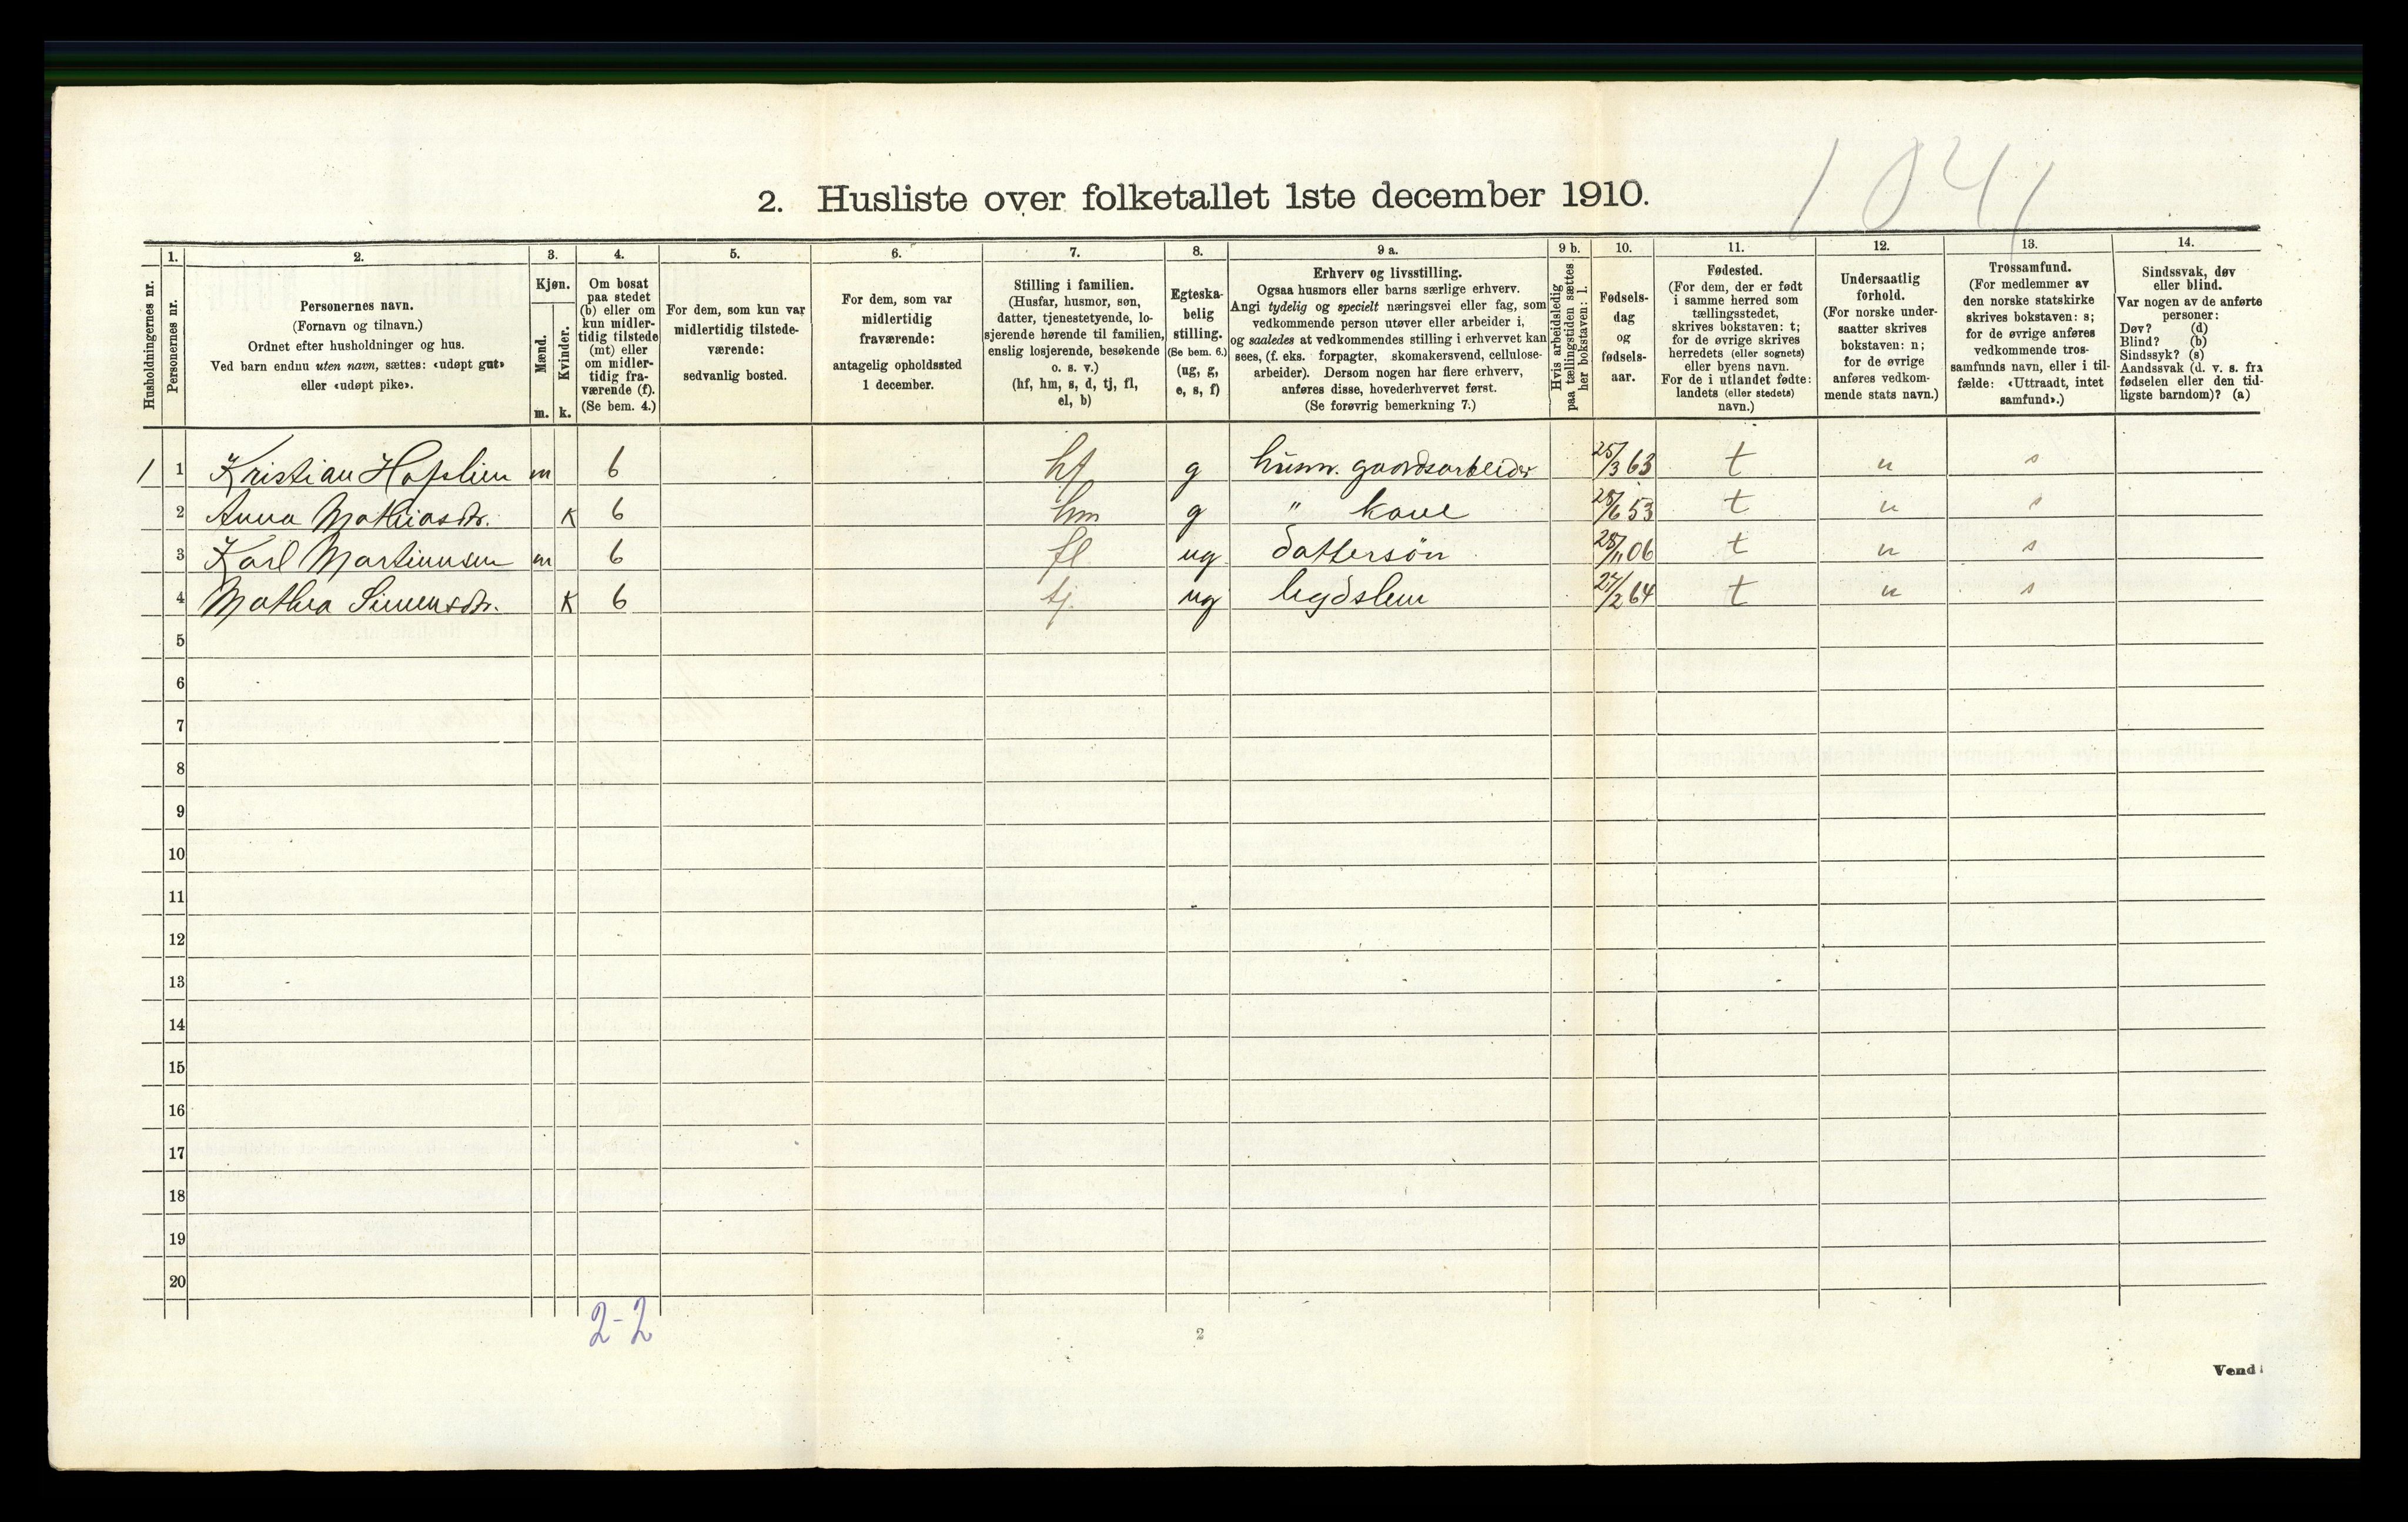 1041
2. Husliste over folketallet 1ste december 1910.
Husholdningernes nr.
1.
Personernes nr.
2.
Personernes navn.
(Fornavn og tilnavn.)
Ordnet efter husholdninger og hus.
Ved barn endnu uten navn, sættes: «udøpt gut»
eller «udøpt pike».
3.
Kjøn.
Mænd.
Kvinder.
m. k.
4.
Om bosat
paa stedet
(b) eller om
kun midler-
tidig tilstede
(mt) eller
om midler-
tidig fra-
værende (f).
(Se bem. 4.)
5.
For dem, som kun var
midlertidig tilstede-
værende:
sedvanlig bosted.
6.
For dem, som var
midlertidig
fraværende:
antagelig opholdssted
1 december.
7.
Stilling i familien.
(Husfar, husmor, søn,
datter, tjenestetyende, lo-
sjerende hørende til familien,
enslig losjerende, besøkende
o. s. v.)
(hf, hm, s, d, tj, fl,
el, b)
8.
Egteska-
belig
stilling.
(Se bem. 6.)
(ug, g,
e, s, f)
9 a.
Erhverv og livsstilling.
Ogsaa husmors eller barns særlige erhverv.
Angi tydelig og specielt næringsvei eller fag, som
vedkommende person utøver eller arbeider i,
og saaledes at vedkommendes stilling i erhvervet kan
sees, (f. eks. forpagter, skomakersvend, cellulose-
arbeider). Dersom nogen har flere erhverv,
anføres disse, hovederhvervet først.
(Se forøvrig bemerkning 7.)
9 b.
Hvis arbeidsledig
paa tællingstiden sættes
her bokstaven: l.
10.
Fødsels-
dag
og
fødsels-
aar.
11.
Fødested.
(For dem, der er født
i samme herred som
tællingsstedet,
skrives bokstaven: t;
for de øvrige skrives
herredets (eller sognets)
eller byens navn.
For de i utlandet fødte:
landets (eller stedets)
navn.)
12.
Undersaatlig
forhold.
(For norske under-
saatter skrives
bokstaven: n;
for de øvrige
anføres vedkom-
mende stats navn.)
13.
Trossamfund.
(For medlemmer av
den norske statskirke
skrives bokstaven: s;
for de øvrige anføres
vedkommende tros-
samfunds navn, eller i til-
fælde: «Uttraadt, intet
samfund».)
14.
Sindssvak, døv
eller blind.
Var nogen av de anførte
personer:
Døv? (d)
Blind? (b)
Sindssyk? (s)
Aandssvak (d. v. s. fra
fødselen eller den tid-
ligste barndom)? (a)
1 1 Kristian Hofslien m b hf g husm. gaardsarbeider 25/3 63 t n s
2 Anna Mathiasdtr. k b hm g " kone 28/6 53 t n s
3 Karl Martinusen m b fl ug dattersøn 28/11 06 t n s
4 Mathea Simensdtr. k b tj. ug legdslem 27/2 64 t n s
5
6
7
8
9
10
11
12
13
14
15
16
17
18
19
20
2-2
2
Vend!